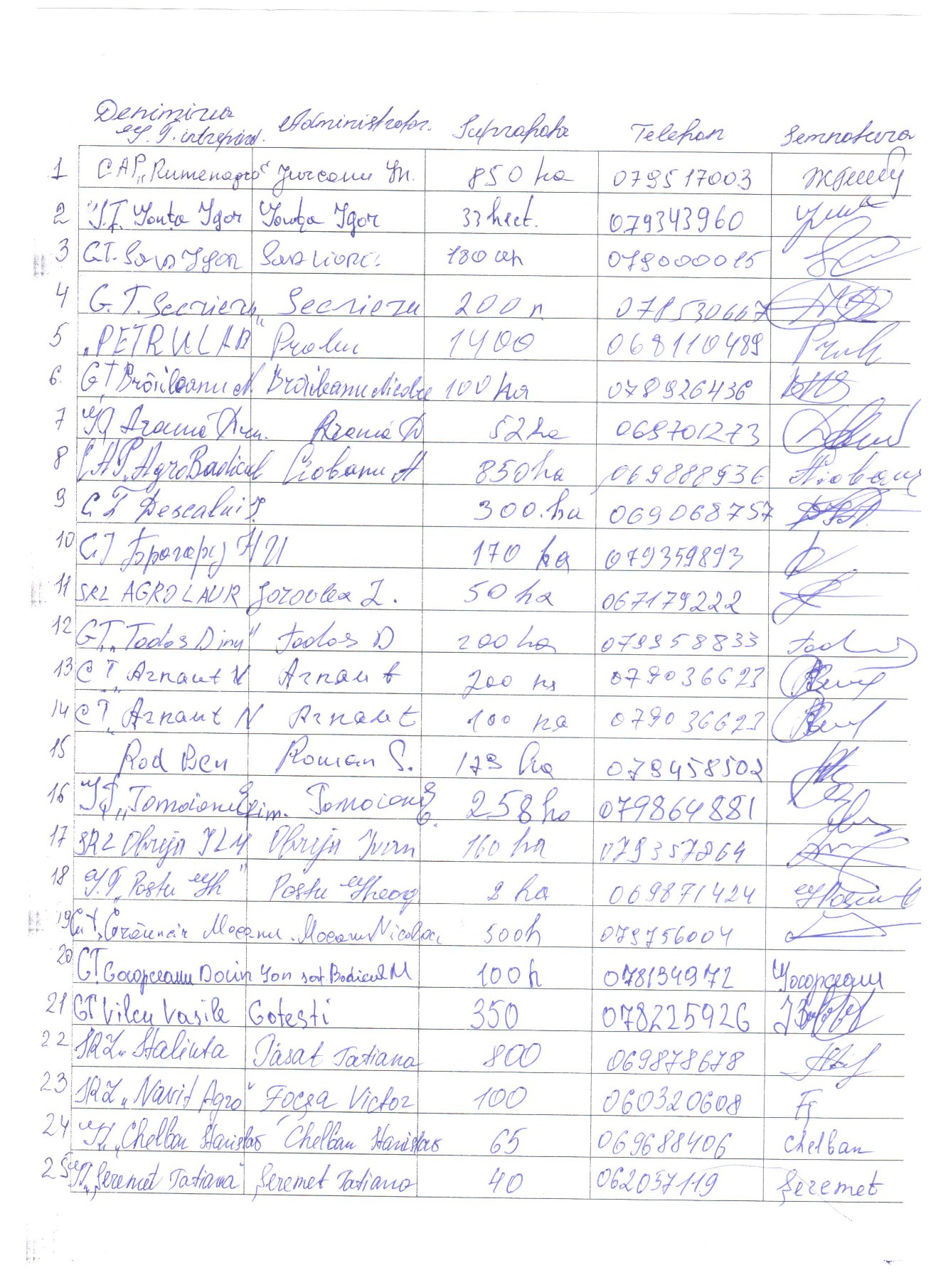 Denimirea Administrator. Suprafata Telefon Semnatura
G.T. intreprind.
1 CAP „Rumenagro" Jurcanu 850 ha 079517003
2 G.T. Ionța Igor Ionța Igor 33 hect. 079343960
3 G.T. Sava Igor 180 079000015
4 G.T. Secrieru" Secrieru 200 078530667
5 „PETRULAB" 1400 068110489
6. GT Brăileanu N Brăileanu Nicolae 100 ha 078926436
7 Arama Arama D 52 ha 068701273
8 CAP. AgroBadicul Ciobanu A 850 ha 069888936 Ciobanu
9 G T Descalui 300. ha 069068757
10 GT 170 ha 079359893
11 SRL AGROLAUR 50 ha 067179222
12 GT „Todos Dinu" Todos D 200 ha 079358833
13 GT „Arnaut V Arnaut 200 ha 079036623
14 GT „Arnaut N Arnaut 100 ha 079036623
15 Rod Ben Roman S. 179 ha 078458502
16 „Tomoioni Efim. Tomoioni E. 258 ha 079864881
17 SRL Obreja ILM Obreja 160 ha 079357264
18 G.T. Postu Gh" Postu Gheorg 2 ha 069871424
19 G.T. Mocanu. Mocanu Nicolae 500h 079756004
20 GT Gocopceanu Dorin Ion sat Badicul M 100h 078134972
21 GT Vilcu Vasile Gotești 350 078225926
22 SRL „Stalinta Pasat Tatiana 800 069878678
23 SRL „Navit Agro" Focșa Victor 100 060320608
24 „Chelban Stanislav Chelban Stanislav 65 069688406 Chelban
25 „Șeremet Tatiana" Șeremet Tatiana 40 062057119 Șeremet